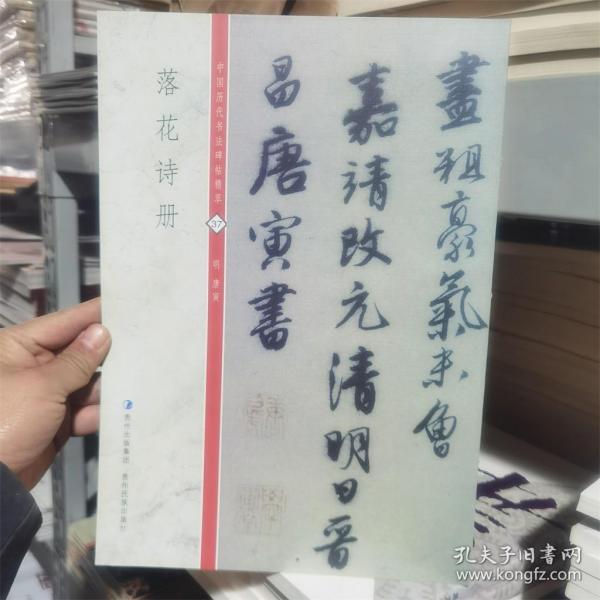 落花诗册
中国历代书法碑帖精萃
37
明 唐寅
贵州出版集团 贵州民族出版社
盡粗豪氣未魯
嘉靖改元清明日晋
昌唐寅書
孔夫子旧书网
www.kongfz.com